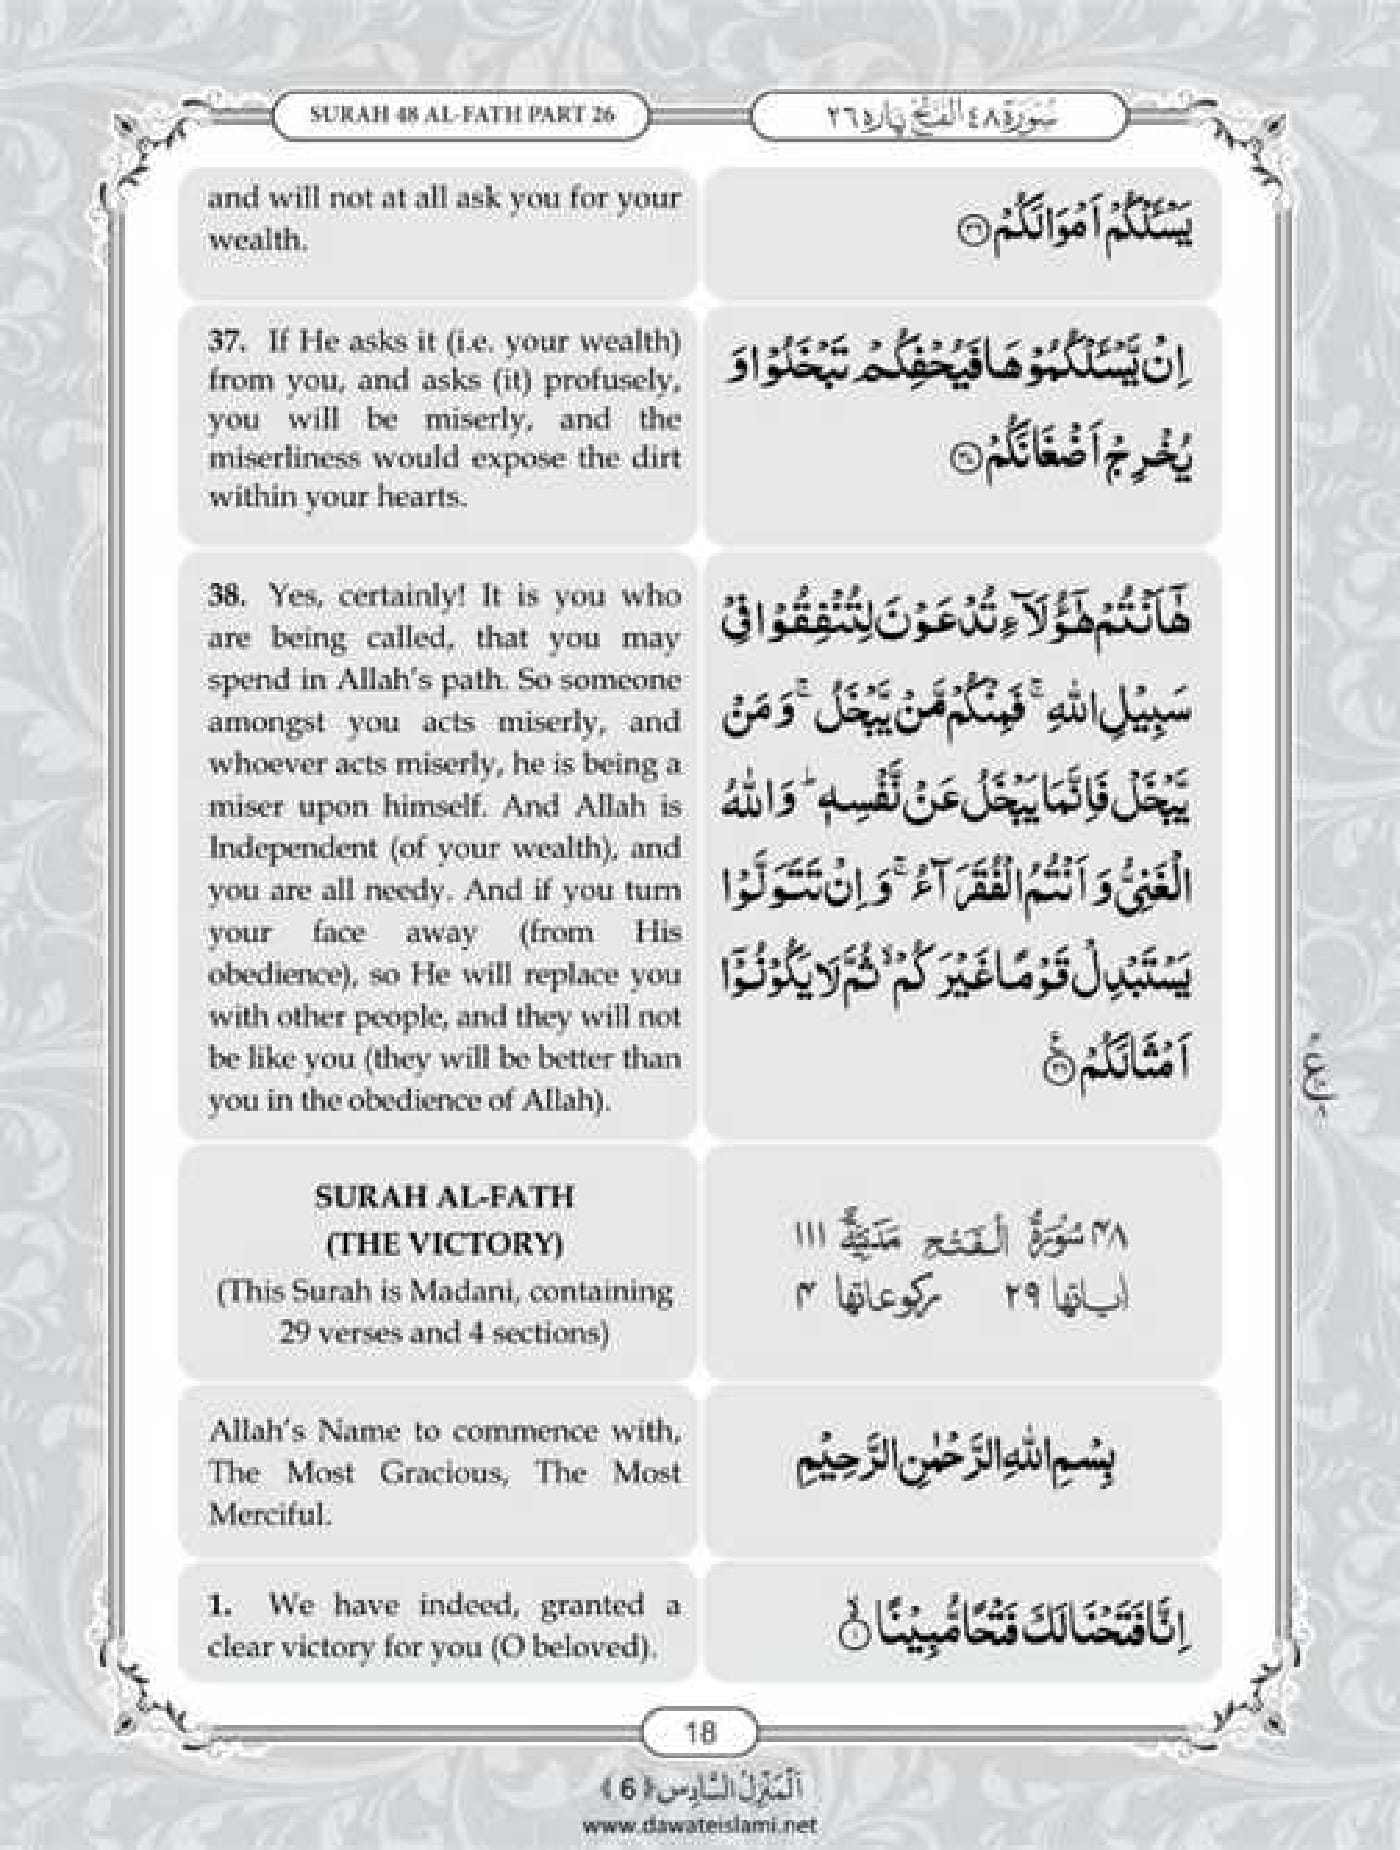 SURAH 48 AL-FATH PART 26
سُوْرَة ٤٨ الفَتْحُ پاره ٢٦
and will not at all ask you for your
wealth.
يَسْـَٔلْكُمْ اَمْوَالَكُمْ ﴿۳۶﴾
37. If He asks it (i.e. your wealth)
from you, and asks (it) profusely,
you will be miserly, and the
miserliness would expose the dirt
within your hearts.
اِنْ یَّسْـَٔلْكُمُوْهَا فَیُحْفِكُمْ تَبْخَلُوْا وَ
یُخْرِجْ اَضْغَانَكُمْ ﴿۳۷﴾
38. Yes, certainly! It is you who
are being called, that you may
spend in Allah's path. So someone
amongst you acts miserly, and
whoever acts miserly, he is being a
miser upon himself. And Allah is
Independent (of your wealth), and
you are all needy. And if you turn
your face away (from His
obedience), so He will replace you
with other people, and they will not
be like you (they will be better than
you in the obedience of Allah).
هٰۤاَنْتُمْ هٰۤؤُلَآءِ تُدْعَوْنَ لِتُنْفِقُوْا فِیْ
سَبِیْلِ اللّٰهِ ۚ فَمِنْكُمْ مَّنْ یَّبْخَلُ ۚ وَ مَنْ
یَّبْخَلْ فَاِنَّمَا یَبْخَلُ عَنْ نَّفْسِهٖ ؕ وَ اللّٰهُ
الْغَنِیُّ وَ اَنْتُمُ الْفُقَرَآءُ ۚ وَ اِنْ تَتَوَلَّوْا
یَسْتَبْدِلْ قَوْمًا غَیْرَكُمْ ۙ ثُمَّ لَا یَكُوْنُوْۤا
اَمْثَالَكُمْ ﴿۳۸﴾
SURAH AL-FATH
(THE VICTORY)
(This Surah is Madani, containing
29 verses and 4 sections)
۴۸ سُوْرَةُ الْفَتْحِ مَدَنِيَّةٌ ۱۱۱
اياتها ۲۹ ركوعاتها ۴
Allah's Name to commence with,
The Most Gracious, The Most
Merciful.
بِسْمِ اللّٰهِ الرَّحْمٰنِ الرَّحِیْمِ
1. We have indeed, granted a
clear victory for you (O beloved).
اِنَّا فَتَحْنَا لَكَ فَتْحًا مُّبِیْنًا ۙ﴿۱﴾
18
اَلْمَنْزِلُ السَّادِس ﴿6﴾
www.dawateislami.net